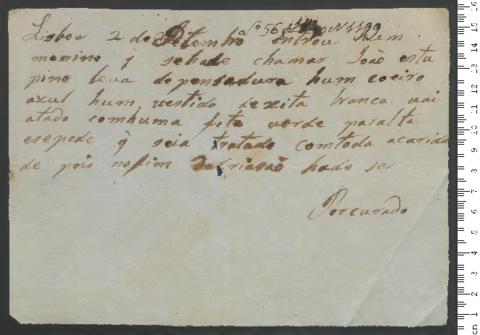 Lisboa 2 de Setembro entrou hum
menino q̃ sehade chamar João estu
pino leva dependadura hum coeiro
azul hum vestido dexita branca vai
atado comhuma fita verde paralta
esepede q̃ seia tratado comtoda acarida
de pois nofim dacriasaõ hade ser
Porcurado